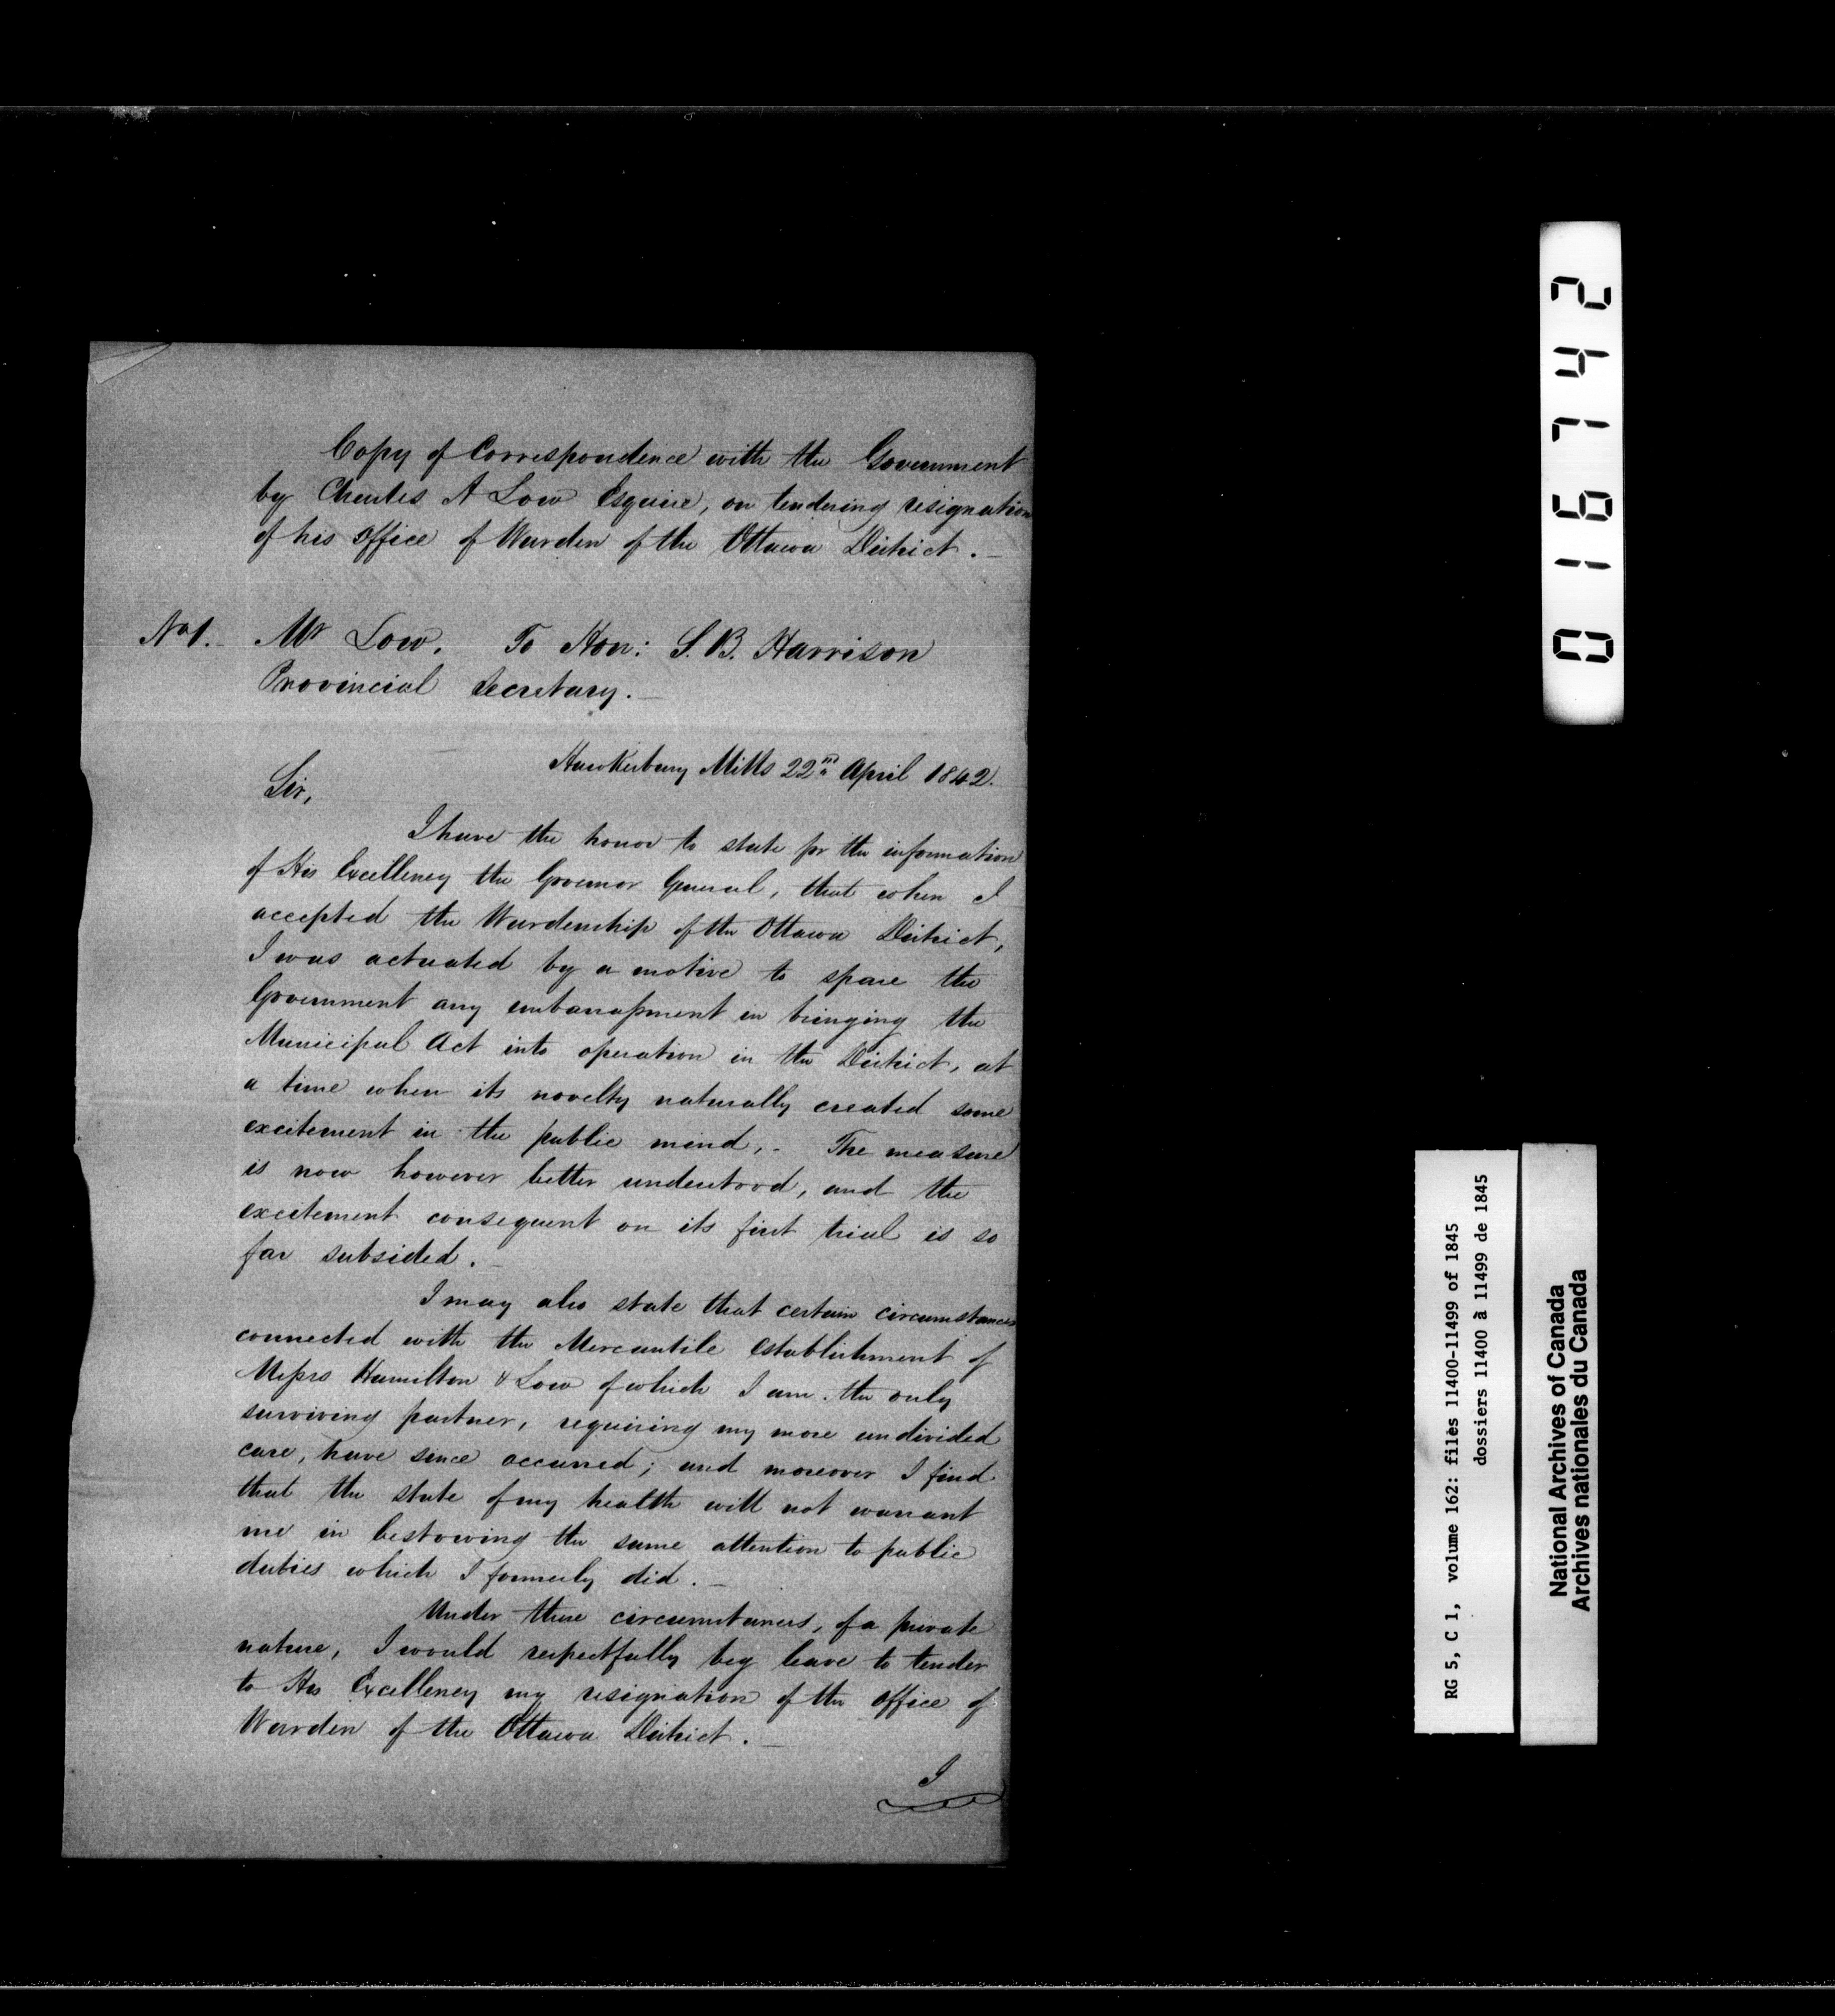 Copy of Correspondence with the Government
by Charles A Low Esquire, on tendering resignation
of his Office of Warden of the Ottawa District.
No 1. Mr Low. To Hon: S. B. Harrison
Provincial Secretary.
Hawkesbury Mills 22nd April 1842.
Sir,
I have the honor to state for the information
of His Excellency the Governor General, that when I
accepted the Wardenship of the Ottawa District,
I was actuated by a motive to spare the
Government any embarassment in bringing the
Municipal Act into operation in the District, at
a time when its novelty naturally created some
excitement in the public mind,. The measure
is now however better understood, and the
excitement consequent on its first trial is so
far subsided.
I may also state that certain circumstances
connected with the Mercantile establishment of
Messrs Hamilton & Low of which I am the only
surviving partner, requiring my more undivided
care, have since occurred; and moreover I find
that the state of my health will not warrant
me in bestowing the same attention to public
duties which I formerly did.
Under these circumstances, of a private
nature, I would respectfully beg leave to tender
to His Excellency my resignation of the office of
Warden of the Ottawa District.
I
016742
RG 5, C 1, volume 162: files 11400-11499 of 1845
dossiers 11400 à 11499 de 1845
National Archives of Canada
Archives nationales du Canada